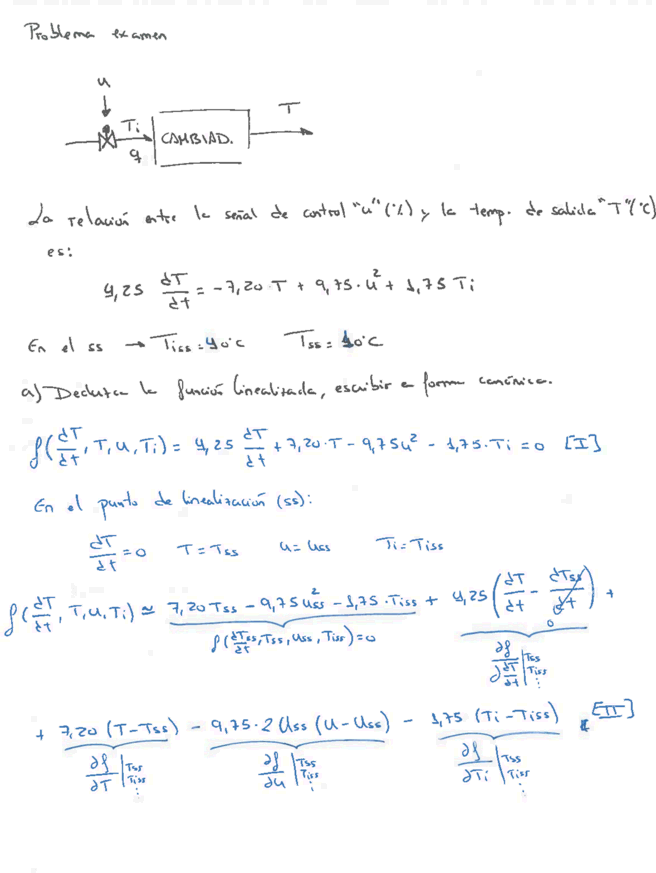 Problema examen
u
Ti
T
q
CAMBIAD.
La relación entre la señal de control "u" (%) y la temp. de salida "T" (°C)
es:
4,25 dT/dt = -7,20·T + 9,75·u² + 1,75 Ti
En el ss → Tiss = 40°C Tss = 40°C
a) Deduzca la función linealizada, escribir e forma canónica.
f(dT/dt, T, u, Ti) = 4,25 dT/dt + 7,20·T - 9,75u² - 1,75·Ti = 0 [I]
En el punto de linealización (ss):
dT/dt = 0 T = Tss u = uss Ti = Tiss
f(dT/dt, T, u, Ti) ≃ 7,20 Tss - 9,75 uss² - 1,75·Tiss + 4,25 (dT/dt - dTss/dt) +
f(dTss/dt, Tss, uss, Tiss) = 0
0
∂f/∂ dT/dt | Tss Tiss ⋮
+ 7,20 (T - Tss) - 9,75·2 Uss (u - Uss) - 1,75 (Ti - Tiss) [II]
∂f/∂T | Tss Tiss ⋮ ∂f/∂u | Tss Tiss ⋮ ∂f/∂Ti | Tss Tiss ⋮